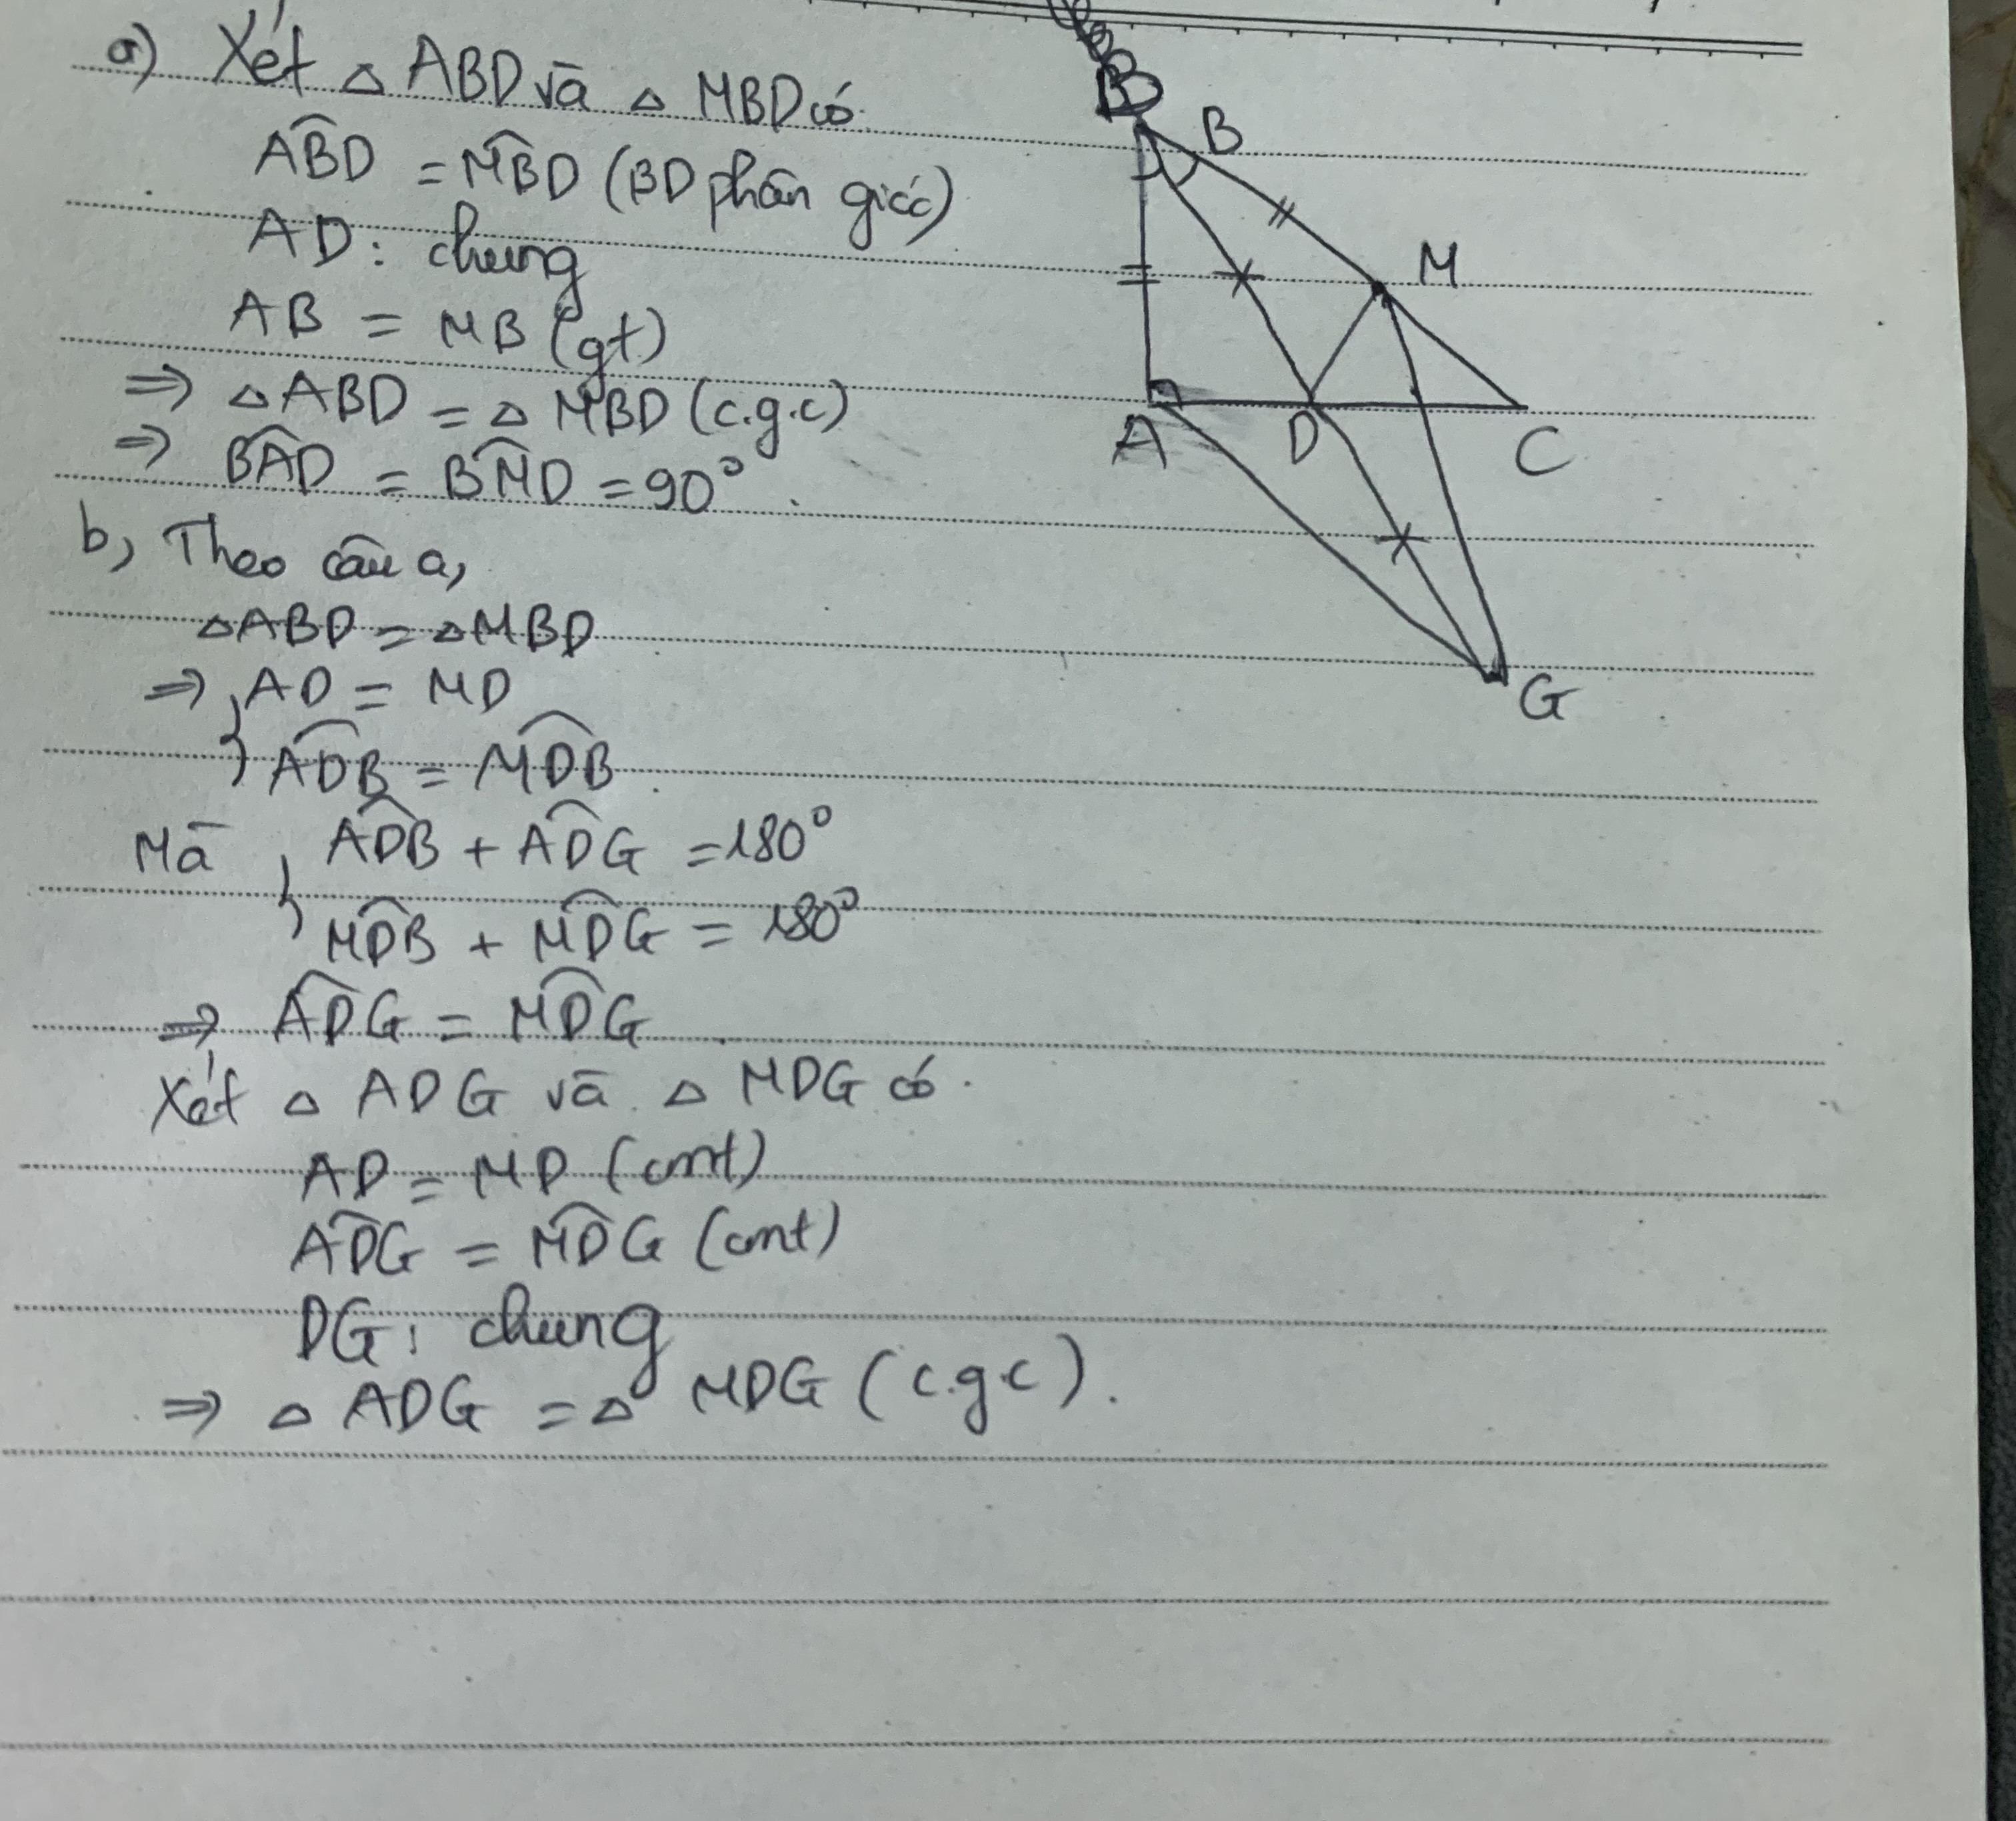 a) Xét △ ABD và △ MBD có
ABD̂ = MBD̂ (BD phân giác)
AD: chung
AB = MB (gt)
⇒ △ABD = △ MBD (c.g.c)
⇒ BAD̂ = BMD̂ = 90°.
b, Theo câu a,
△ABD = △MBD
⇒ AD = MD
ADB̂ = MDB̂.
Mà ADB̂ + ADĜ = 180°
MDB̂ + MDĜ = 180°
⇒ ADĜ = MDĜ
Xét △ ADG và △ MDG có.
AD = MD (cmt)
ADĜ = MDĜ (cmt)
DG: chung
⇒ △ ADG = △ MDG (c.g.c).
B
B
M
A
D
C
G